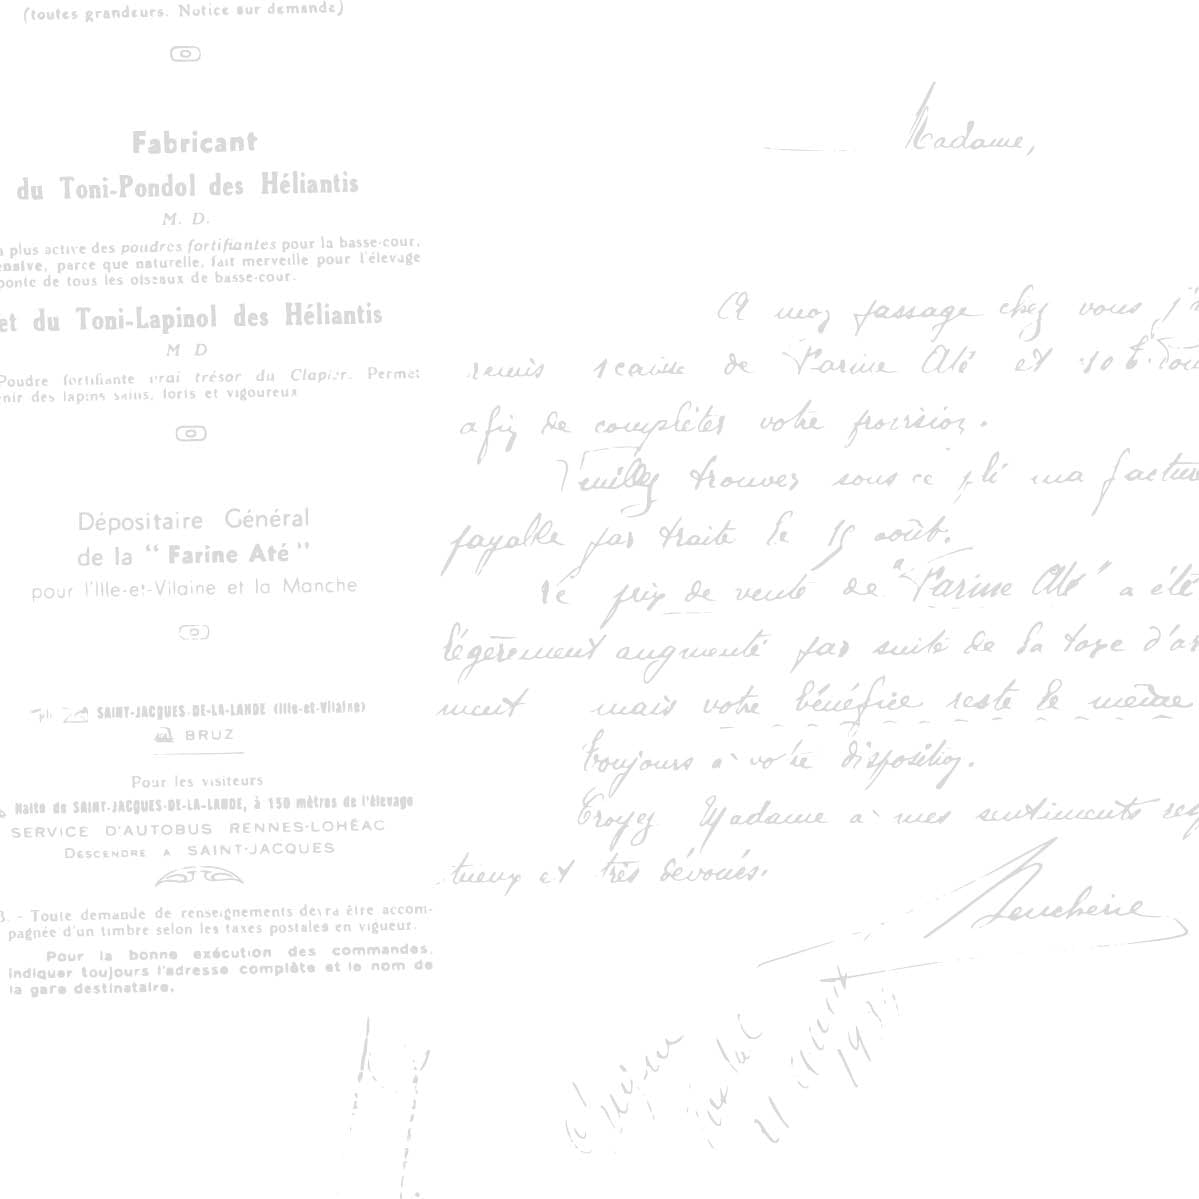 (toutes grandeurs. Notice sur demande)
Fabricant
du Toni-Pondol des Héliantis
M. D.
plus active des poudres fortifiantes pour la basse-cour,
parce que naturelle, fait merveille pour l'élevage
ponte de tous les oiseaux de basse-cour.
et du Toni-Lapinol des Héliantis
M D
Poudre fortifiante vrai trésor du Clapier. Permet
des lapins sains, forts et vigoureux
Dépositaire Général
de la " Farine Até "
pour l'Ille-et-Vilaine et la Manche
SAINT-JACQUES-DE-LA-LANDE (Ille-et-Vilaine)
BRUZ
Pour les visiteurs
Halte de SAINT-JACQUES-DE-LA-LANDE, à 150 mètres de l'élevage
SERVICE D'AUTOBUS RENNES-LOHÉAC
DESCENDRE A SAINT-JACQUES
B. - Toute demande de renseignements devra être accom-
pagnée d'un timbre selon les taxes postales en vigueur.
Pour la bonne exécution des commandes,
indiquer toujours l'adresse complète et le nom de
la gare destinataire.
Madame,
A mon passage chez vous j'
remis 1 caisse de Farine Até et 10
afin de compléter votre provision.
Veuillez trouver sous ce pli ma facture
payable par traite le 15 août.
Le prix de vente de "Farine Até" a été
légèrement augmenté par suite de la taxe
ment mais votre bénéfice reste le même
Toujours à votre disposition.
Croyez Madame à mes sentiments
tueux et très dévoués.